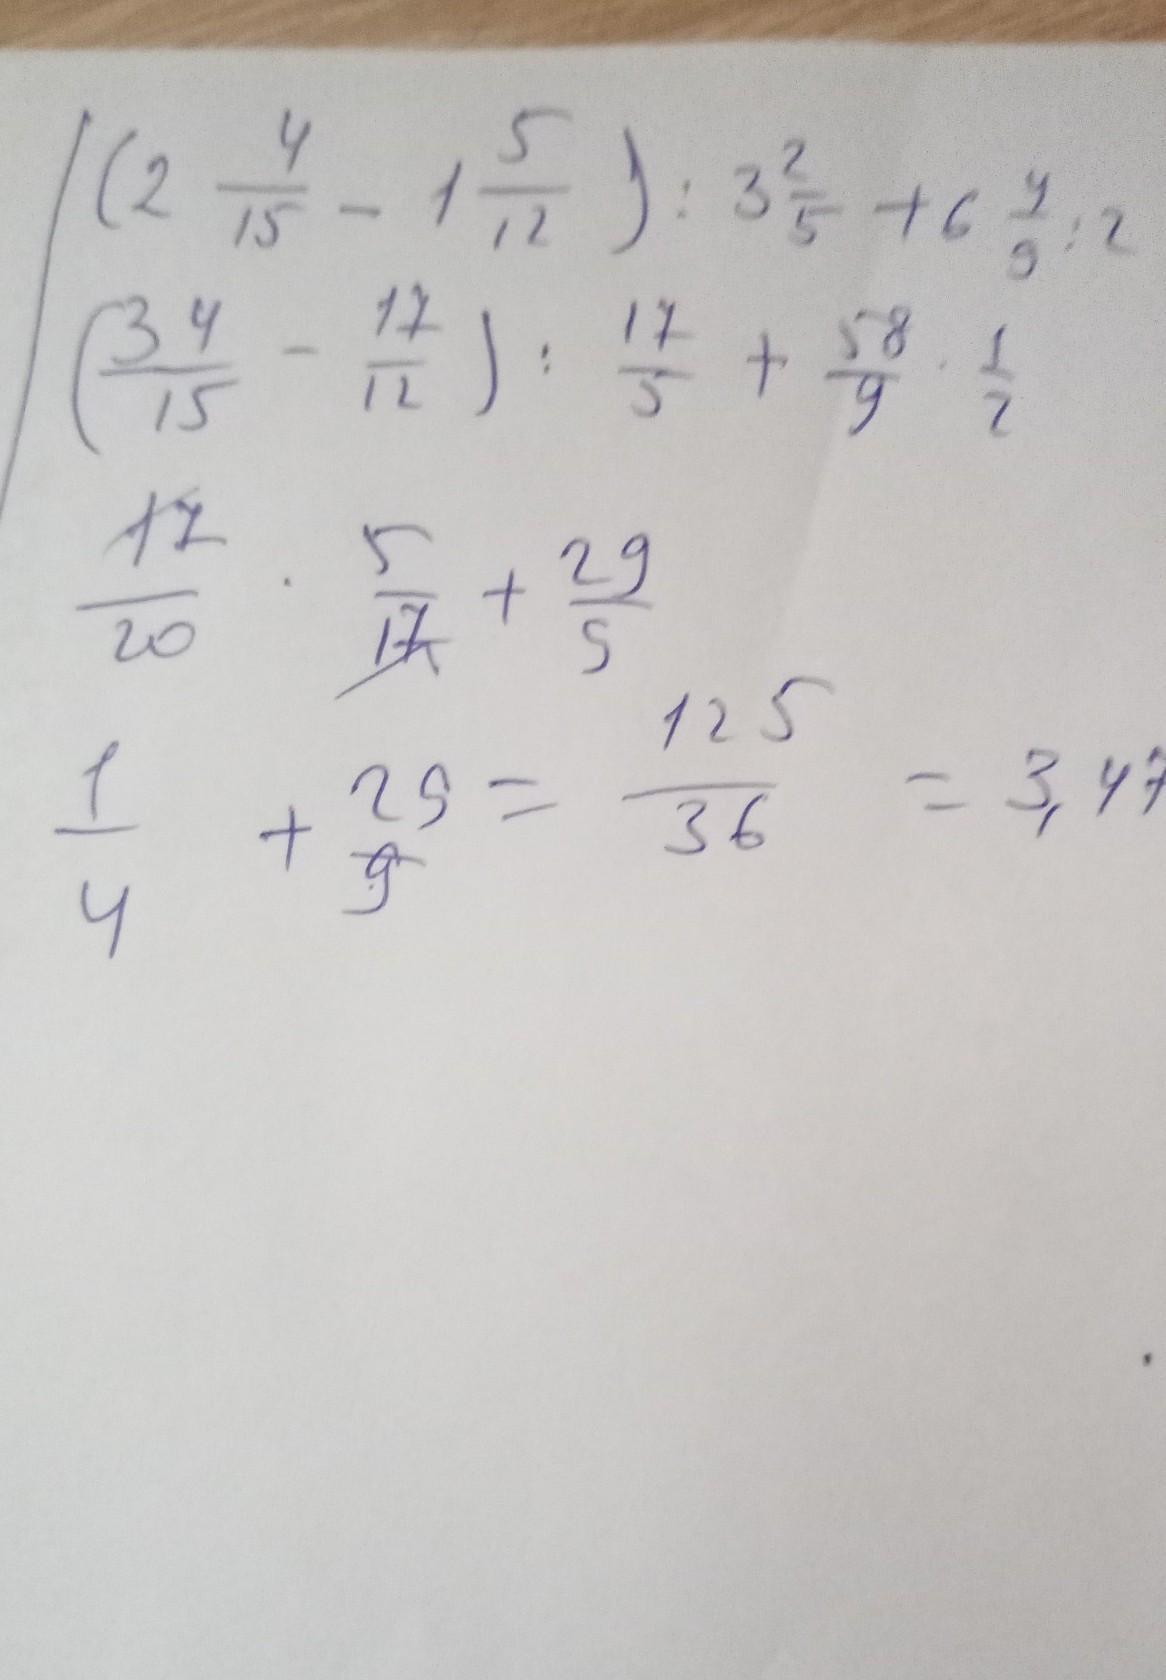 (2 4/15 - 1 5/12) : 3 2/5 + 6 4/9 : 2
(34/15 - 17/12) : 17/5 + 58/9 · 1/2
17/20 · 5/17 + 29/9
1/4 + 29/9 = 125/36 = 3,47